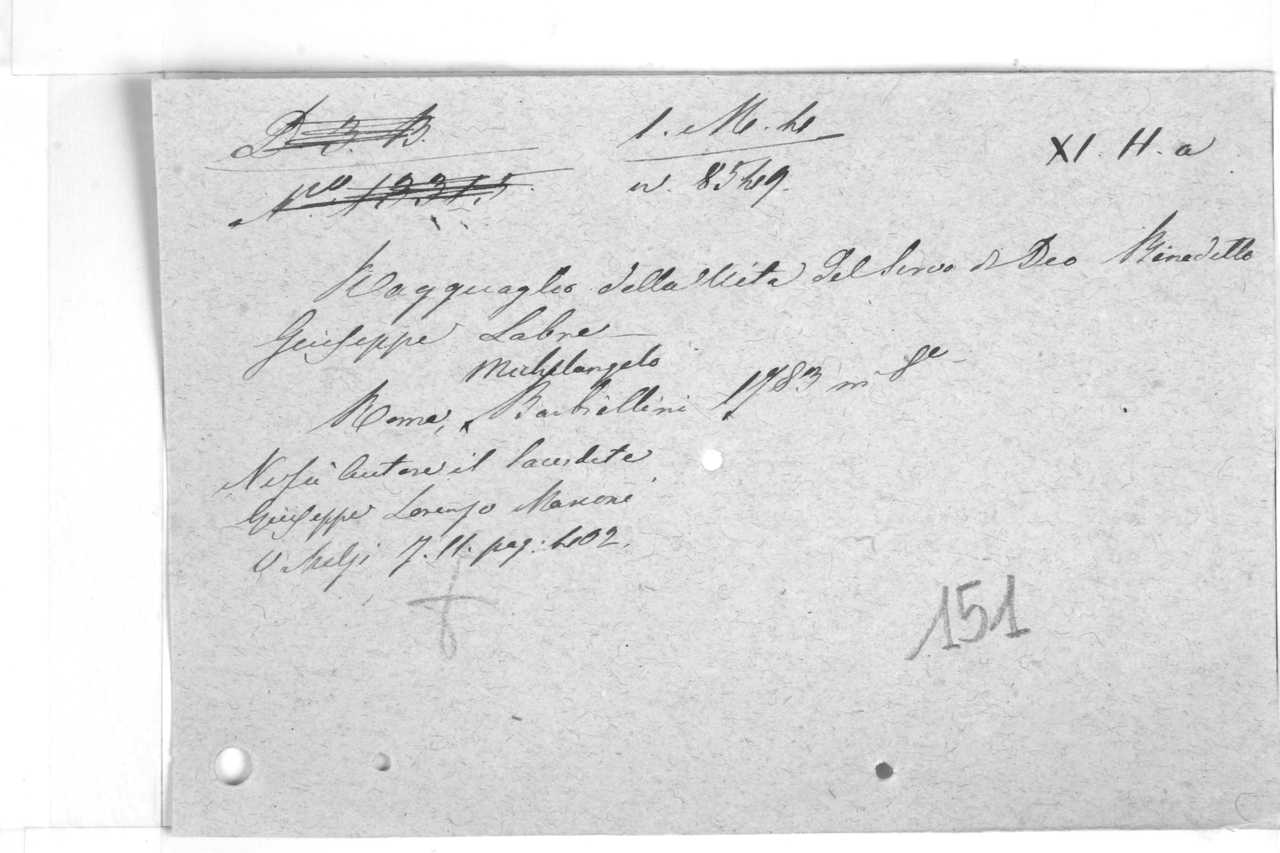 D. 3. B. 1. M. 4 XI. H. a
No. 13315. n. 8549.
Ragguaglio della Vita del Servo di Dio Benedetto
Giuseppe Labre
Michelangelo
Roma, Barbiellini 1783 in 8e
Ne fu autore il Sacerdote
Giuseppe Lorenzo Marconi
V Melzi T. II. pag: 402.
151